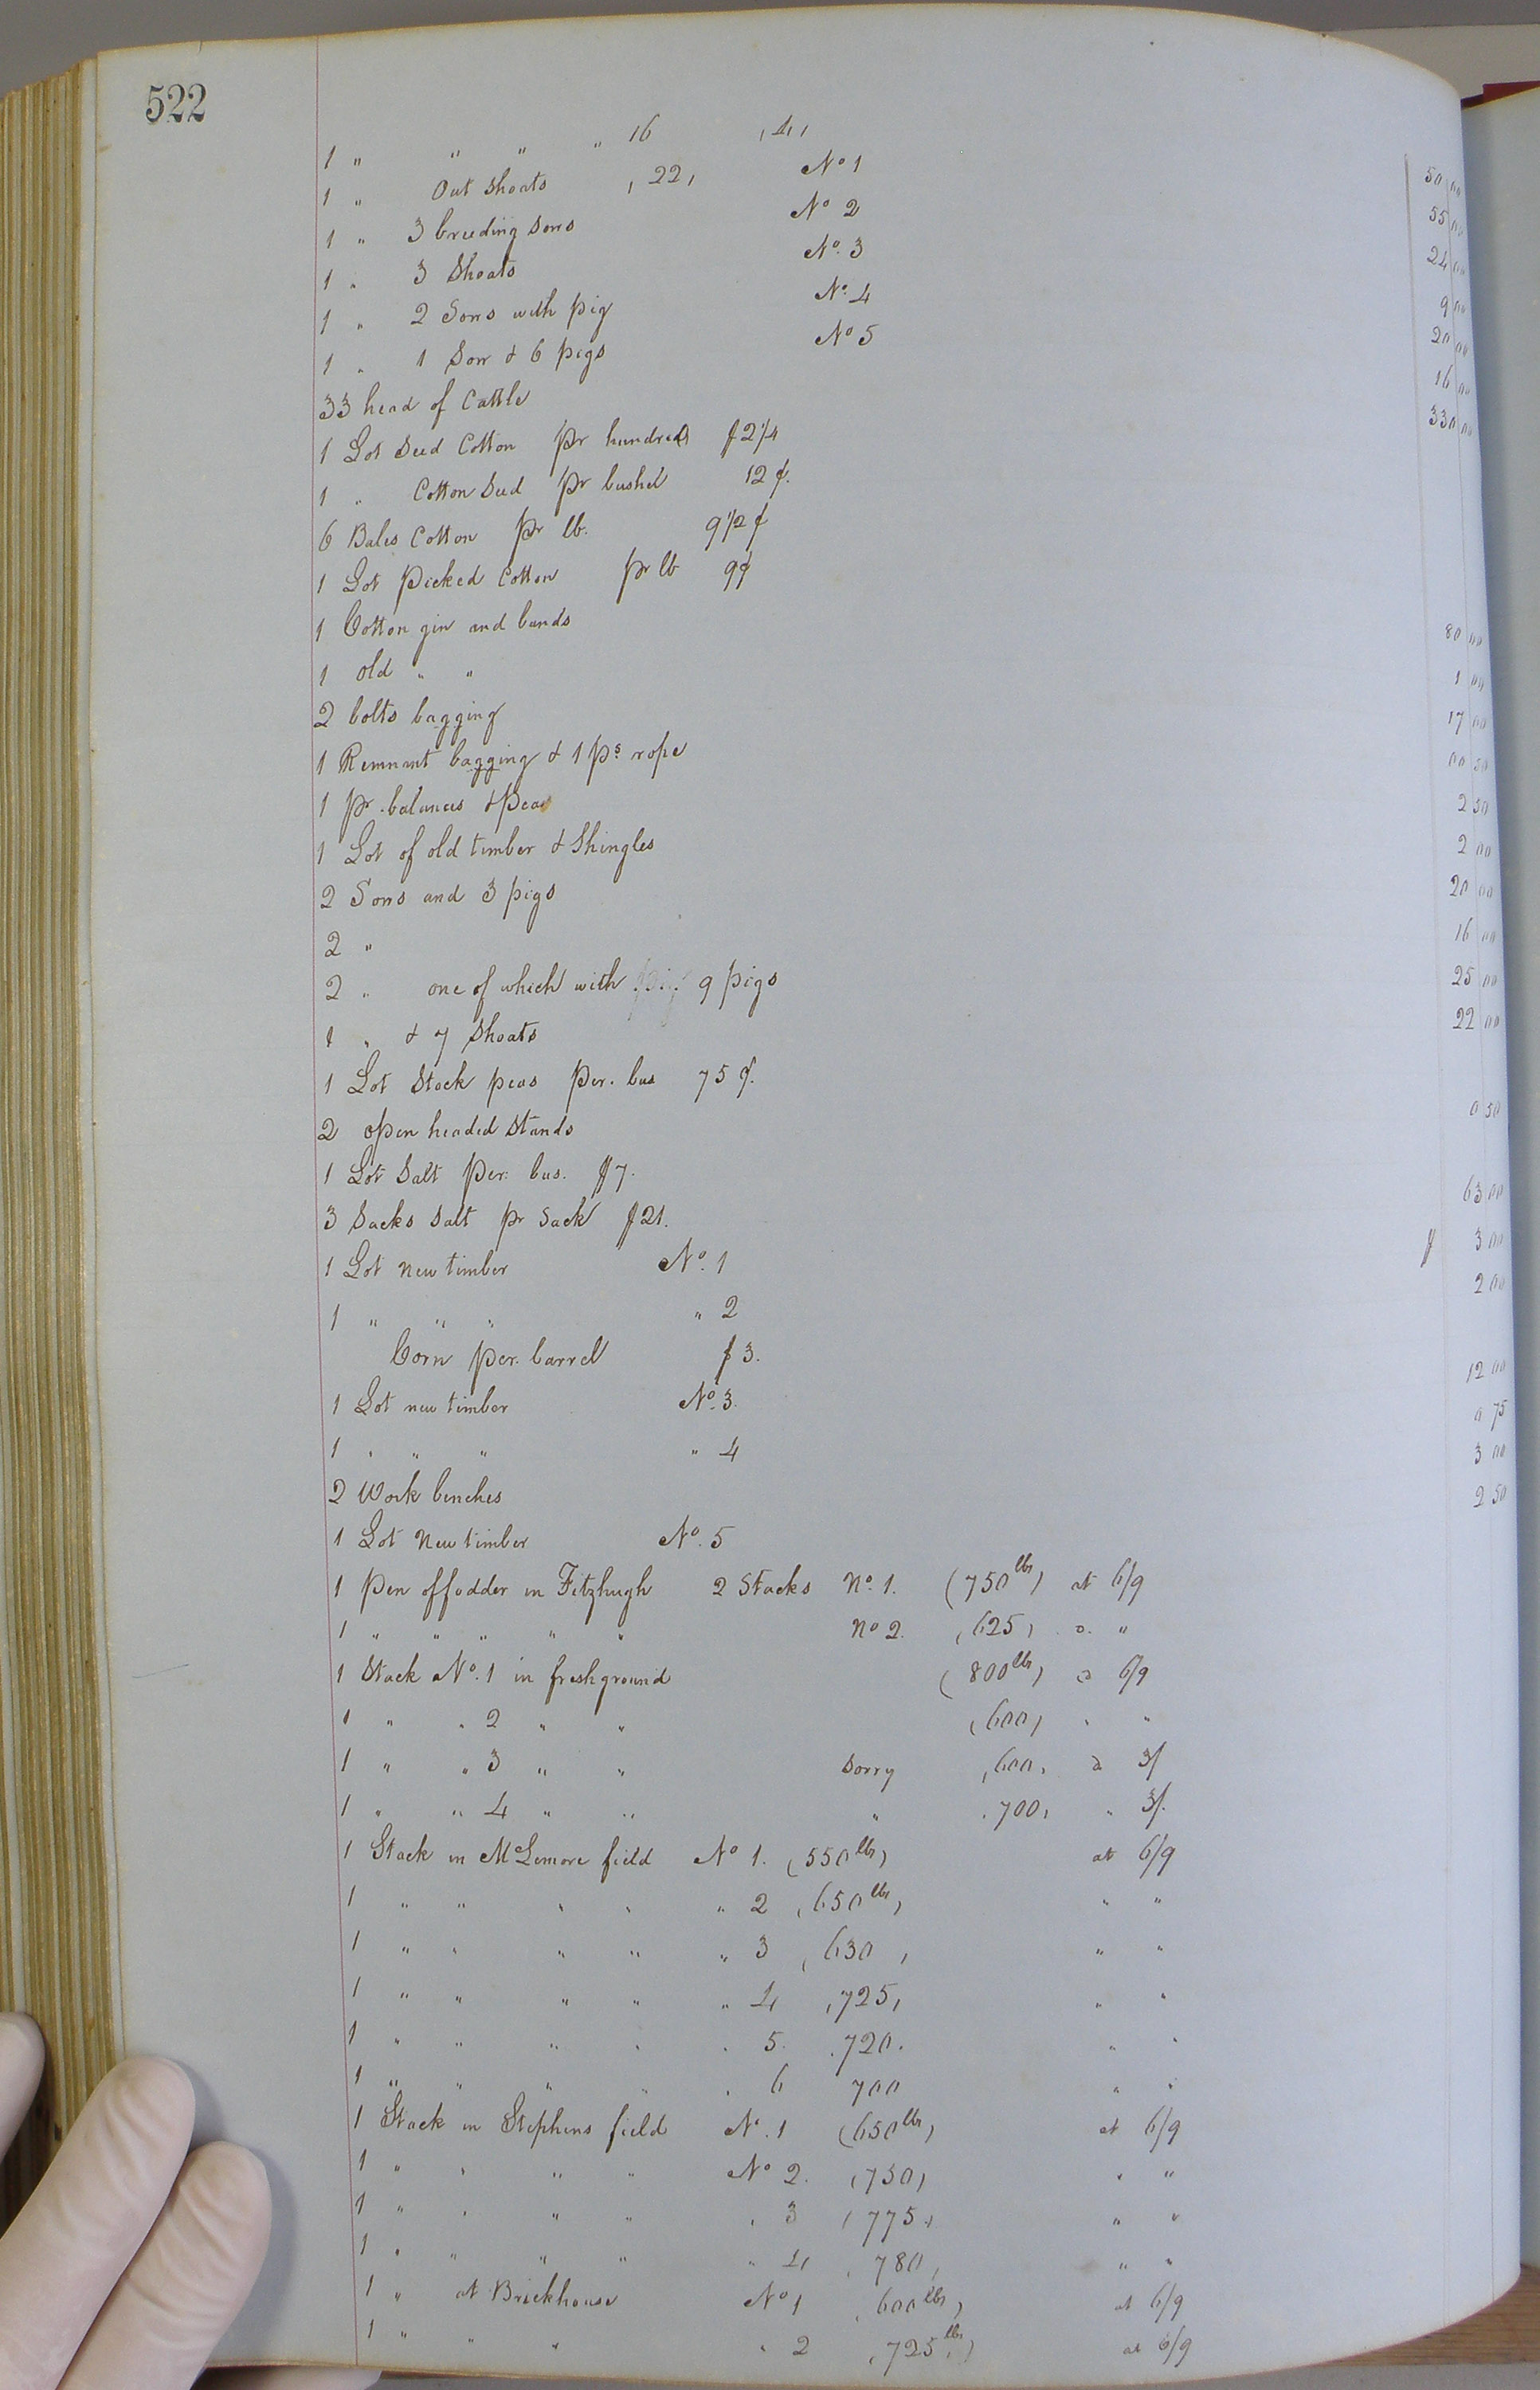 522
1 " " " " 16 (4) 50 00
1 " Out Shoats (22) No 1 55 00
1 " 3 breeding Sows No 2 24 00
1 " 3 Shoats No. 3 9 00
1 " 2 Sows with pig No. 4 20 00
1 " 1 Sow & 6 pigs No 5 16 00
33 head of Cattle 330 00
1 Lot Seed Cotton pr hundred $2 1/4
1 " Cotton Seed pr bushel 12 ¢.
6 Bales Cotton pr lb. 9 1/2 ¢
1 Lot Picked Cotton pr lb 9¢
1 Cotton gin and bands 80 00
1 old " " 1 00
2 bolts bagging 17 00
1 Remnant bagging & 1 ps rope 00 50
1 pr. balances & peas 2 50
1 Lot of old timber & Shingles 2 00
2 Sows and 3 pigs 20 00
2 " 16 00
2 " one of which with 9 pigs 25 00
1 " & 7 Shoats 22 00
1 Lot Stock peas Per. bus 75 ¢.
2 open headed Stands 0 50
1 Lot Salt Per. bus. $7.
3 Sacks Salt pr Sack $21. 63 00
1 Lot new timber No. 1 $ 3 00
1 " " " " 2 2 00
Corn per. barrel $3.
1 Lot new timber No. 3. 12 00
1 " " " " 4 0 75
2 Work benches 3 00
1 Lot New timber No. 5 2 50
1 Pen of fodder in Fitzhugh 2 Stacks No. 1. (750 lbs) at 6/9
1 " " " " " No 2. (625) a. "
1 Stack No. 1 in freshground (800 lbs) a 6/9
1 " " 2 " " (600) " "
1 " " 3 " " Sorry (600) a 3/
1 " " 4 " " " (700) " 3/.
1 Stack in McLemore field No 1. (550 lbs) at 6/9
1 " " " " " 2 (650 lbs) " "
1 " " " " " 3 (630) " "
1 " " " " " 4 (725) " "
1 " " " " " 5. (720) " "
1 " " " " " 6 700 " "
1 Stack in Stephens field No. 1 (650 lbs) at 6/9
1 " " " " No 2. (730) " "
1 " " " " " 3 (775) " "
1 " " " " " 4 (780) " "
1 " at Brickhouse No 1 (600 lbs) at 6/9
1 " " " " 2 (725 lbs) at 6/9